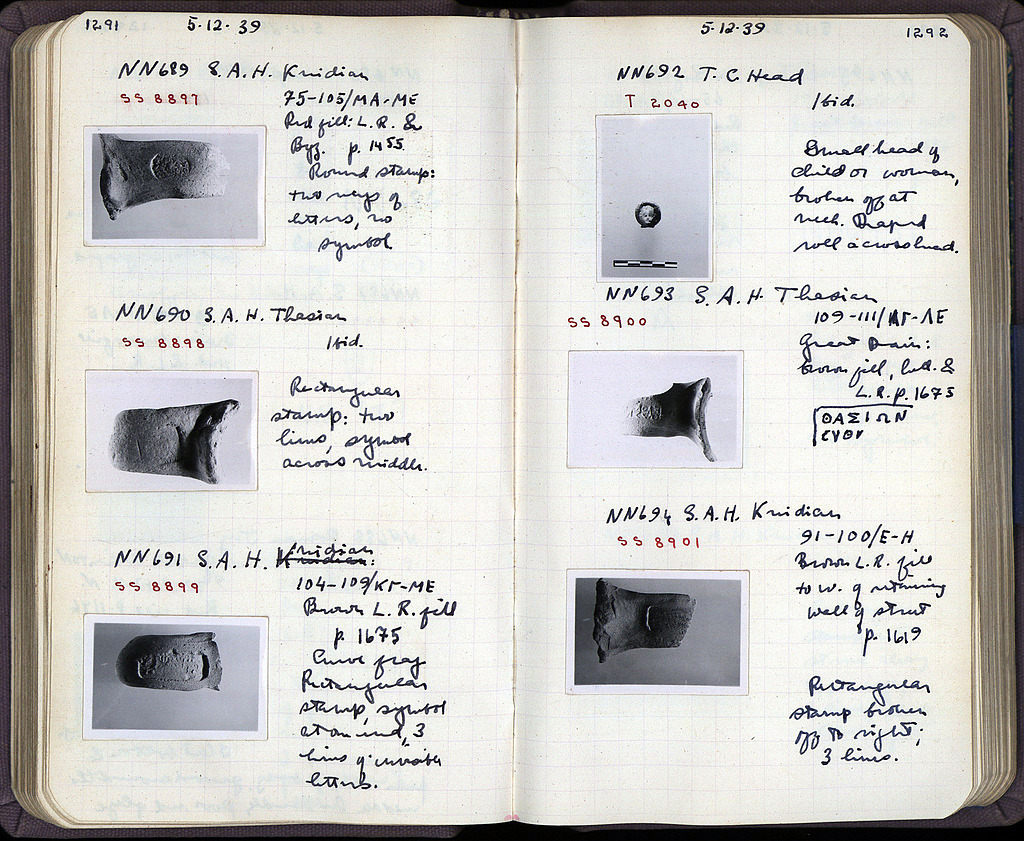 1291 5-12-39
NN689 S.A.H. Knidian
SS 8897
75-105/MA-ME
Red fill: L.R. &
Byz. p. 1455
Round stamp:
two rings of
letters, no
symbol
NN690 S.A.H. Thasian
SS 8898
Ibid.
Rectangular
stamp: two
lines, symbol
across middle.
NN691 S.A.H. Knidian:
Knidian
SS 8899
104-109/KΓ-ME
Brown L.R. fill
p. 1675
Curve frag
Rectangular
stamp, symbol
at one end, 3
lines of invisible
letters.
5-12-39 1292
NN692 T.C. Head
T 2040
Ibid.
Small head of
child or woman,
broken off at
neck. Draped
roll across head.
NN693 S.A.H. Thasian
SS 8900
109-111/ΚΓ-ΛΕ
Great Drain:
brown fill, Hell. &
L.R. p. 1675
ΘΑΣΙΩΝ
ΕΥΘΥ
NN694 S.A.H. Knidian
SS 8901
91-100/E-H
Brown L.R. fill
to W. of retaining
wall of street
p. 1619
Rectangular
stamp broken
off to right;
3 lines.